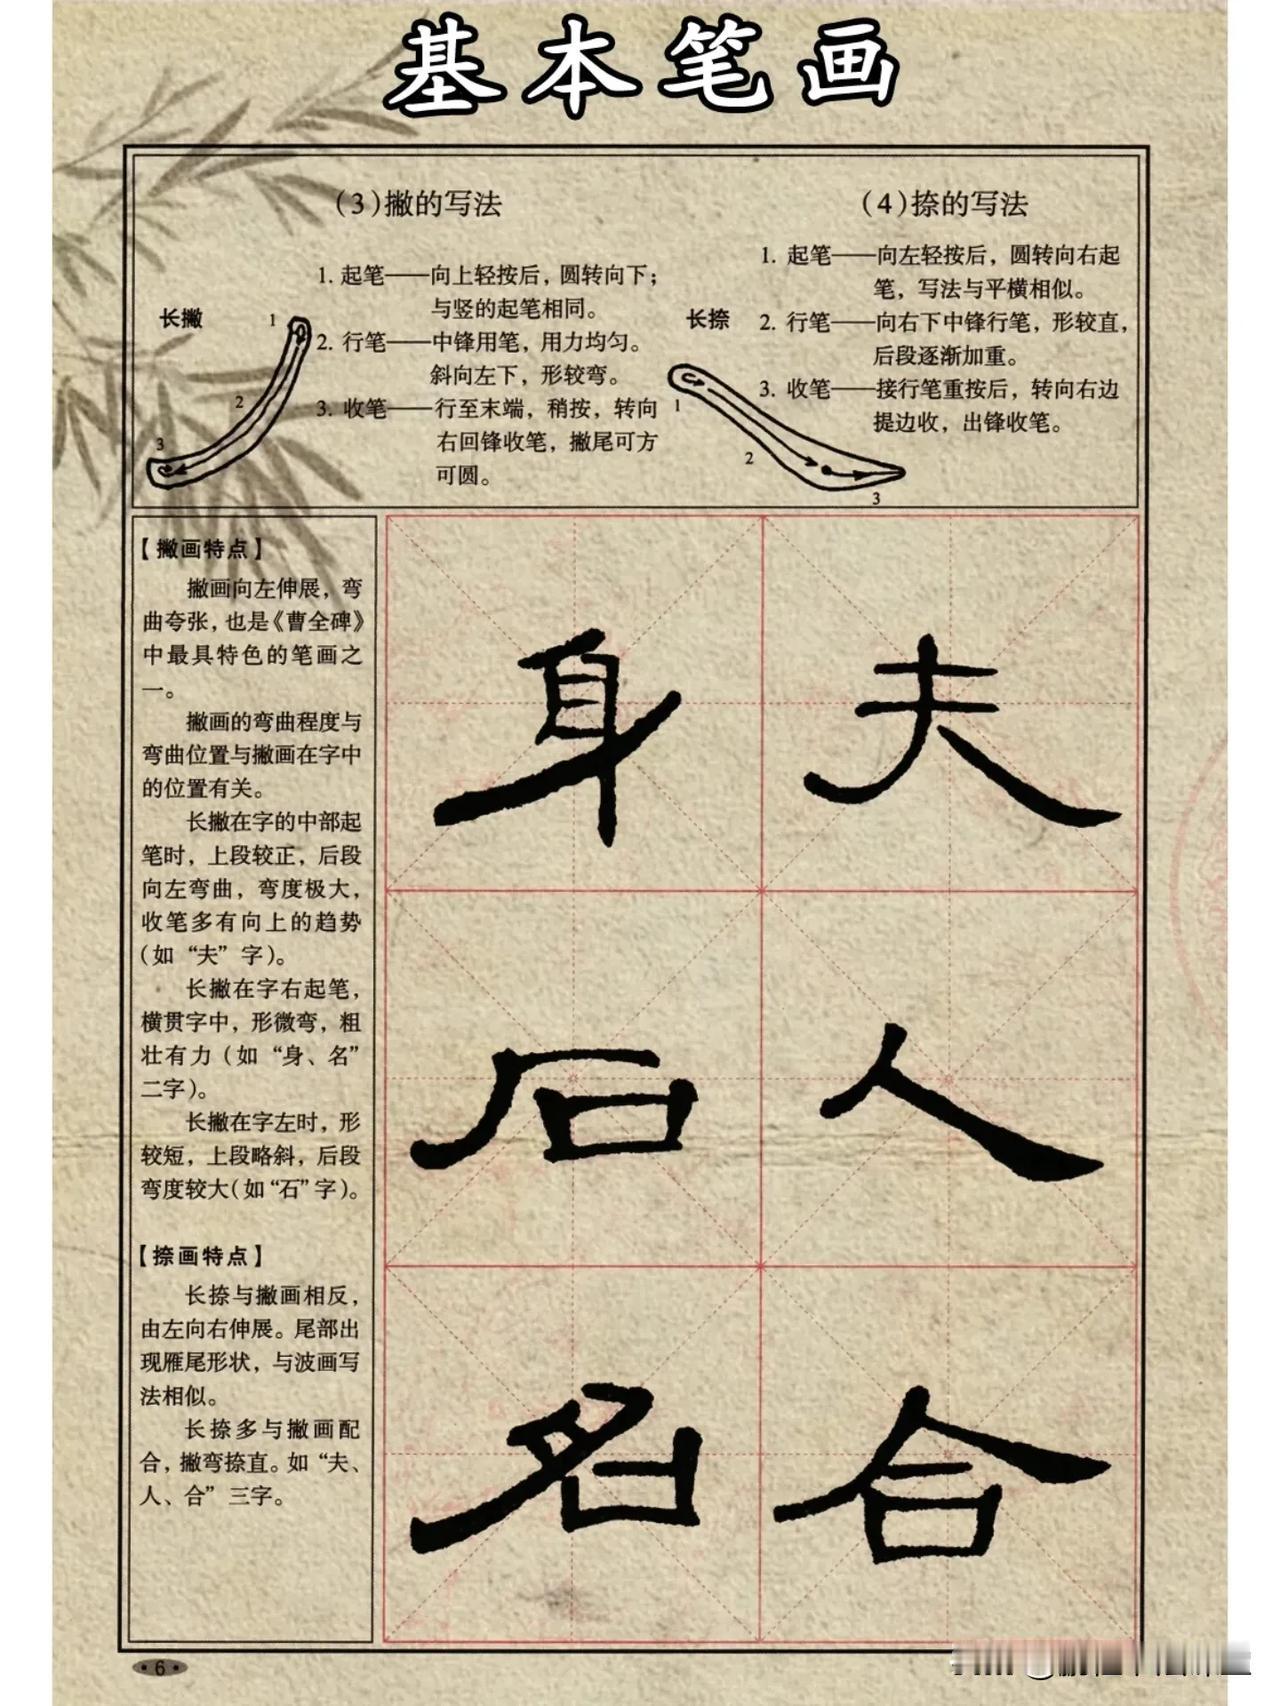 基本笔画
(3)撇的写法
长撇
1
2
3
1. 起笔——向上轻按后，圆转向下；
与竖的起笔相同。
2. 行笔——中锋用笔，用力均匀。
斜向左下，形较弯。
3. 收笔——行至末端，稍按，转向
右回锋收笔，撇尾可方
可圆。
(4)捺的写法
长捺
1
2
3
1. 起笔——向左轻按后，圆转向右起
笔，写法与平横相似。
2. 行笔——向右下中锋行笔，形较直，
后段逐渐加重。
3. 收笔——接行笔重按后，转向右边
提边收，出锋收笔。
【撇画特点】
撇画向左伸展，弯
曲夸张，也是《曹全碑》
中最具特色的笔画之
一。
撇画的弯曲程度与
弯曲位置与撇画在字中
的位置有关。
长撇在字的中部起
笔时，上段较正，后段
向左弯曲，弯度极大，
收笔多有向上的趋势
(如“夫”字)。
长撇在字右起笔，
横贯字中，形微弯，粗
壮有力(如“身、名”
二字)。
长撇在字左时，形
较短，上段略斜，后段
弯度较大(如“石”字)。
【捺画特点】
长捺与撇画相反，
由左向右伸展。尾部出
现雁尾形状，与波画写
法相似。
长捺多与撇画配
合，撇弯捺直。如“夫、
人、合”三字。
身 夫
石 人
名 合
·6·